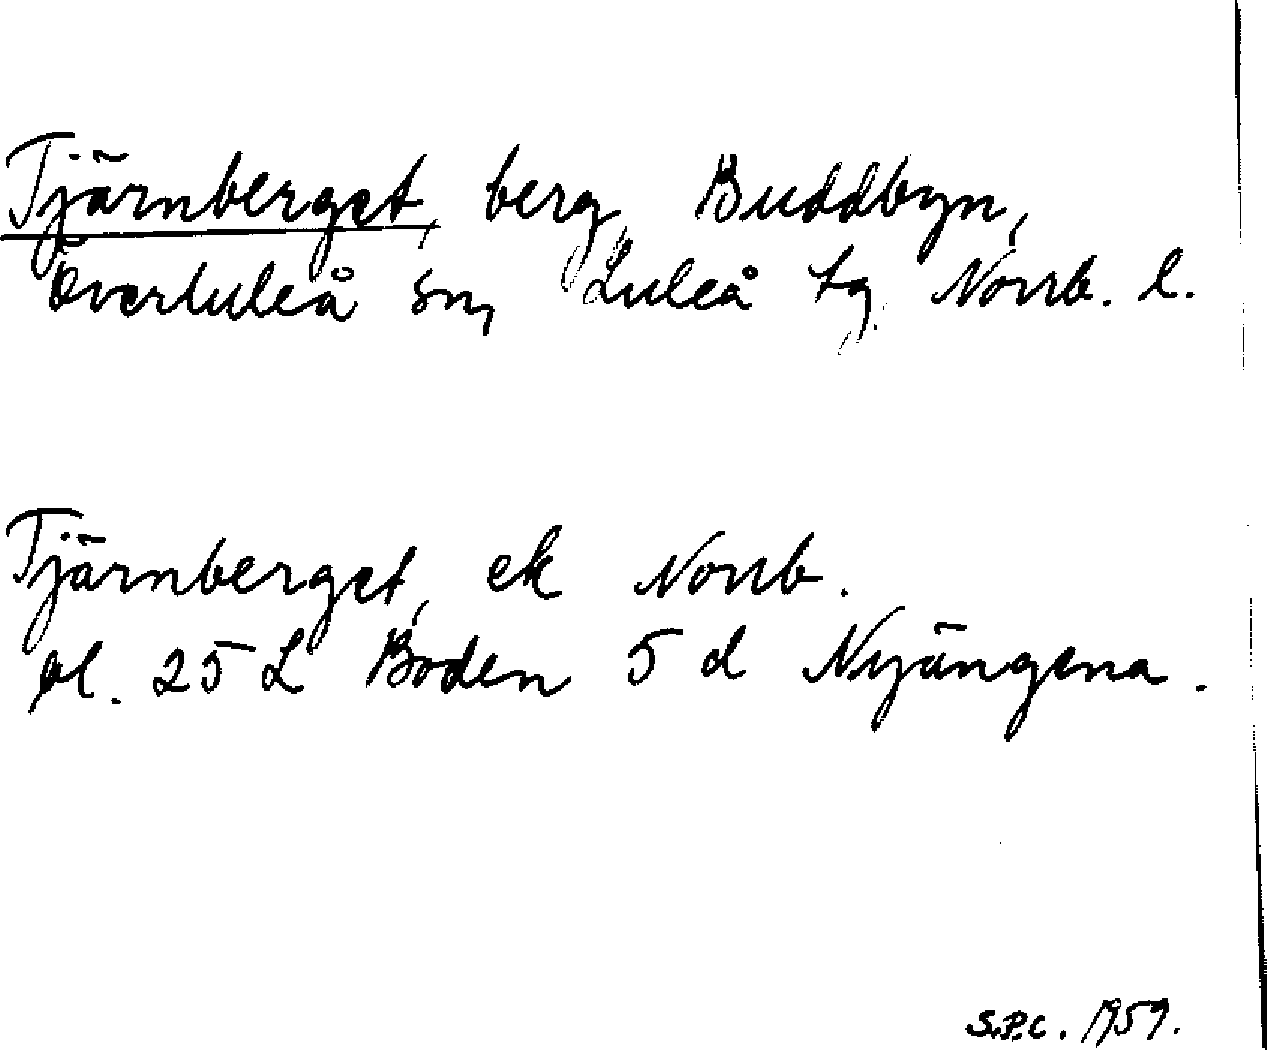 Tjärnberget, berg, Buddbyn,
Överluleå sn, Luleå tg, Norrb. l.
Tjärnberget, ek Norrb.
bl. 25 L Boden 5 d Nyängena.
S.P.C. 1959.